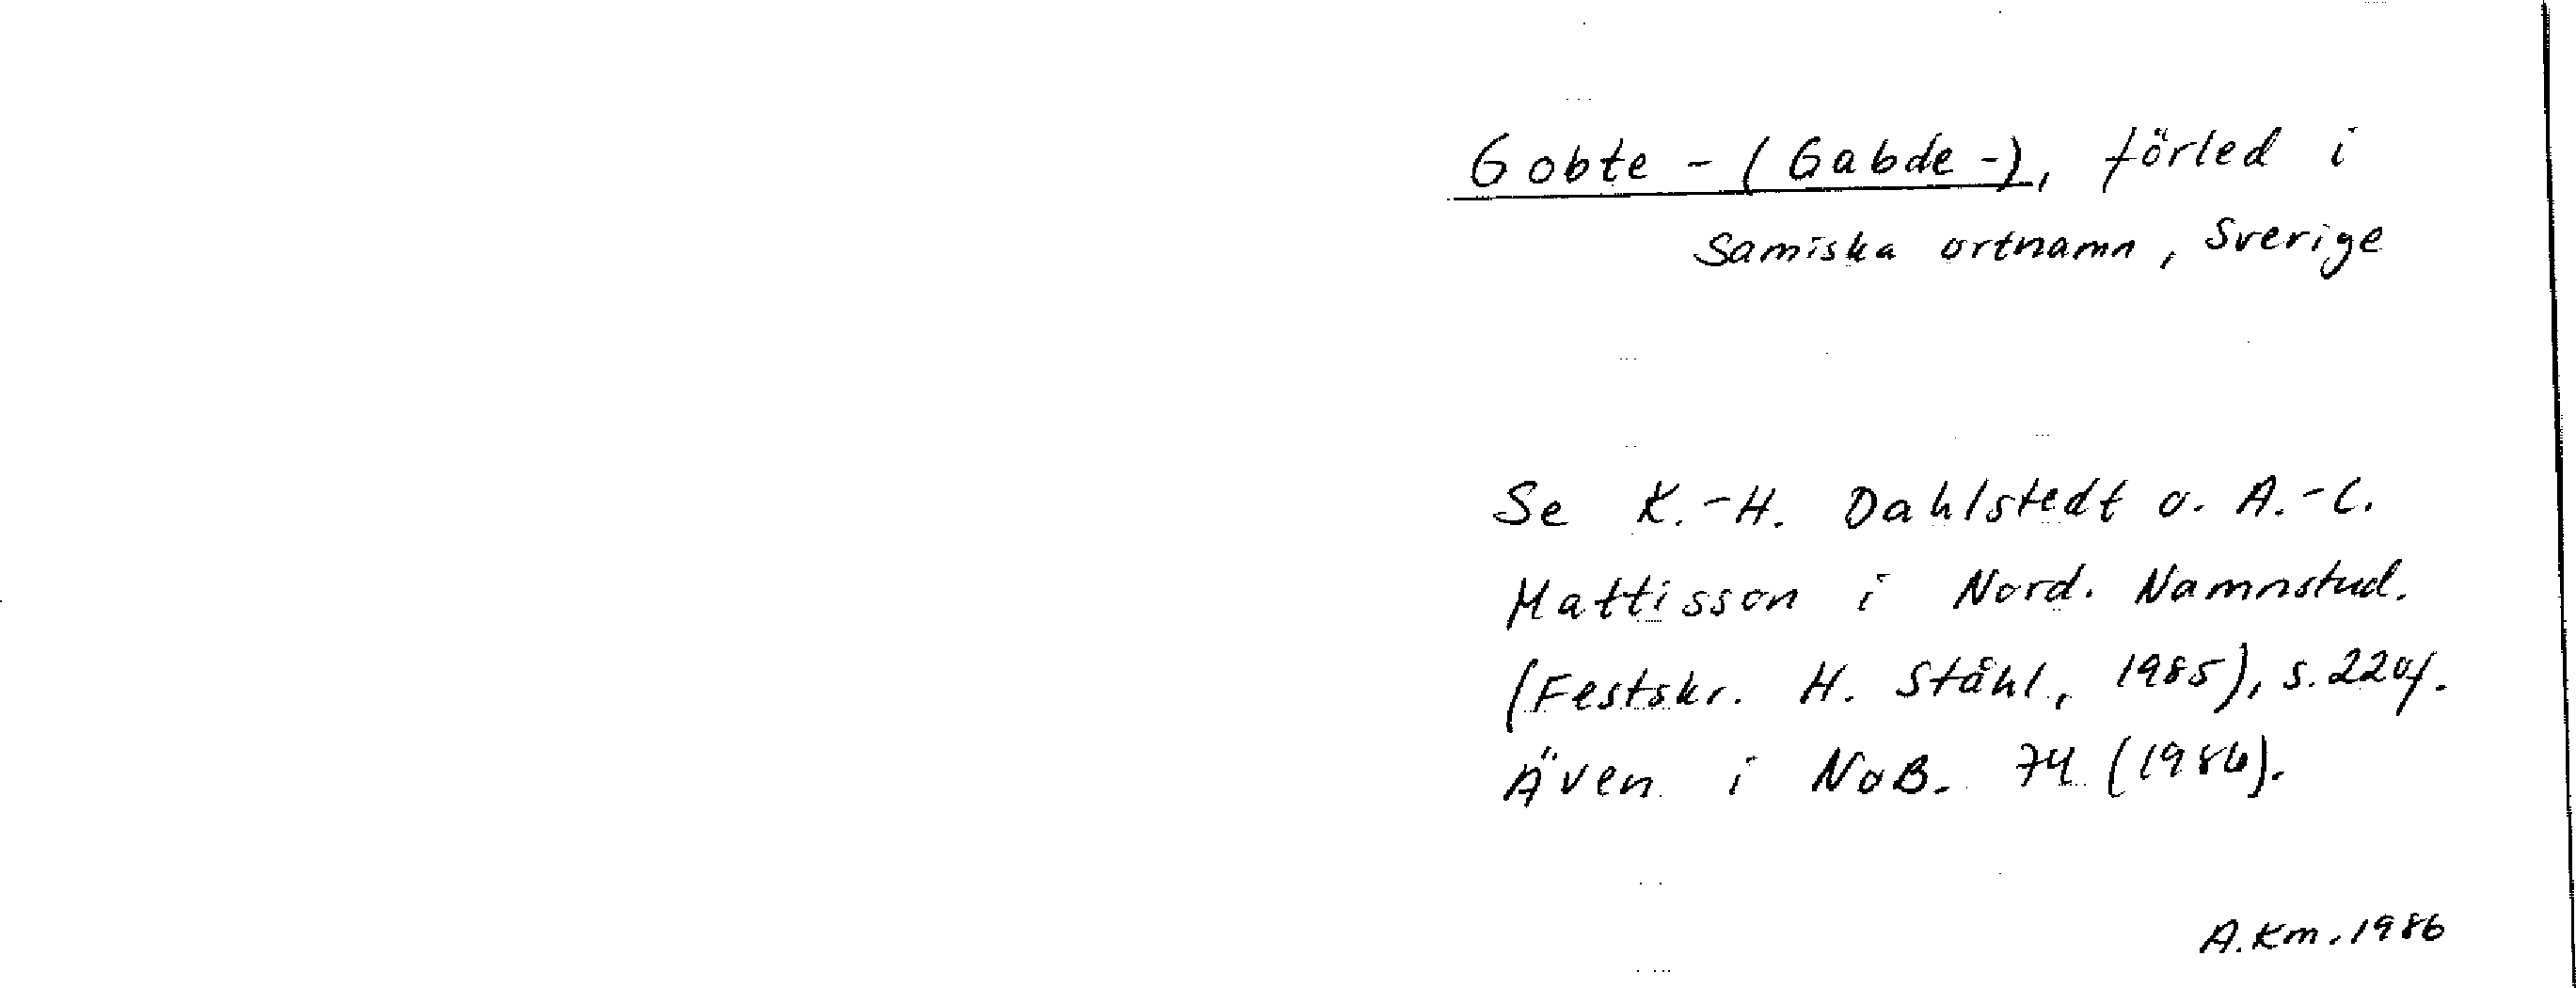 Gobte - (Gabde -), förled i
Samiska ortnamn, Sverige
Se K.-H. Dahlstedt o. A.-C.
Mattisson i Nord. Namnstud.
(Festskr. H. Ståhl, 1985), s. 220f.
Även i NoB. 74 (1986).
A.Km. 1986